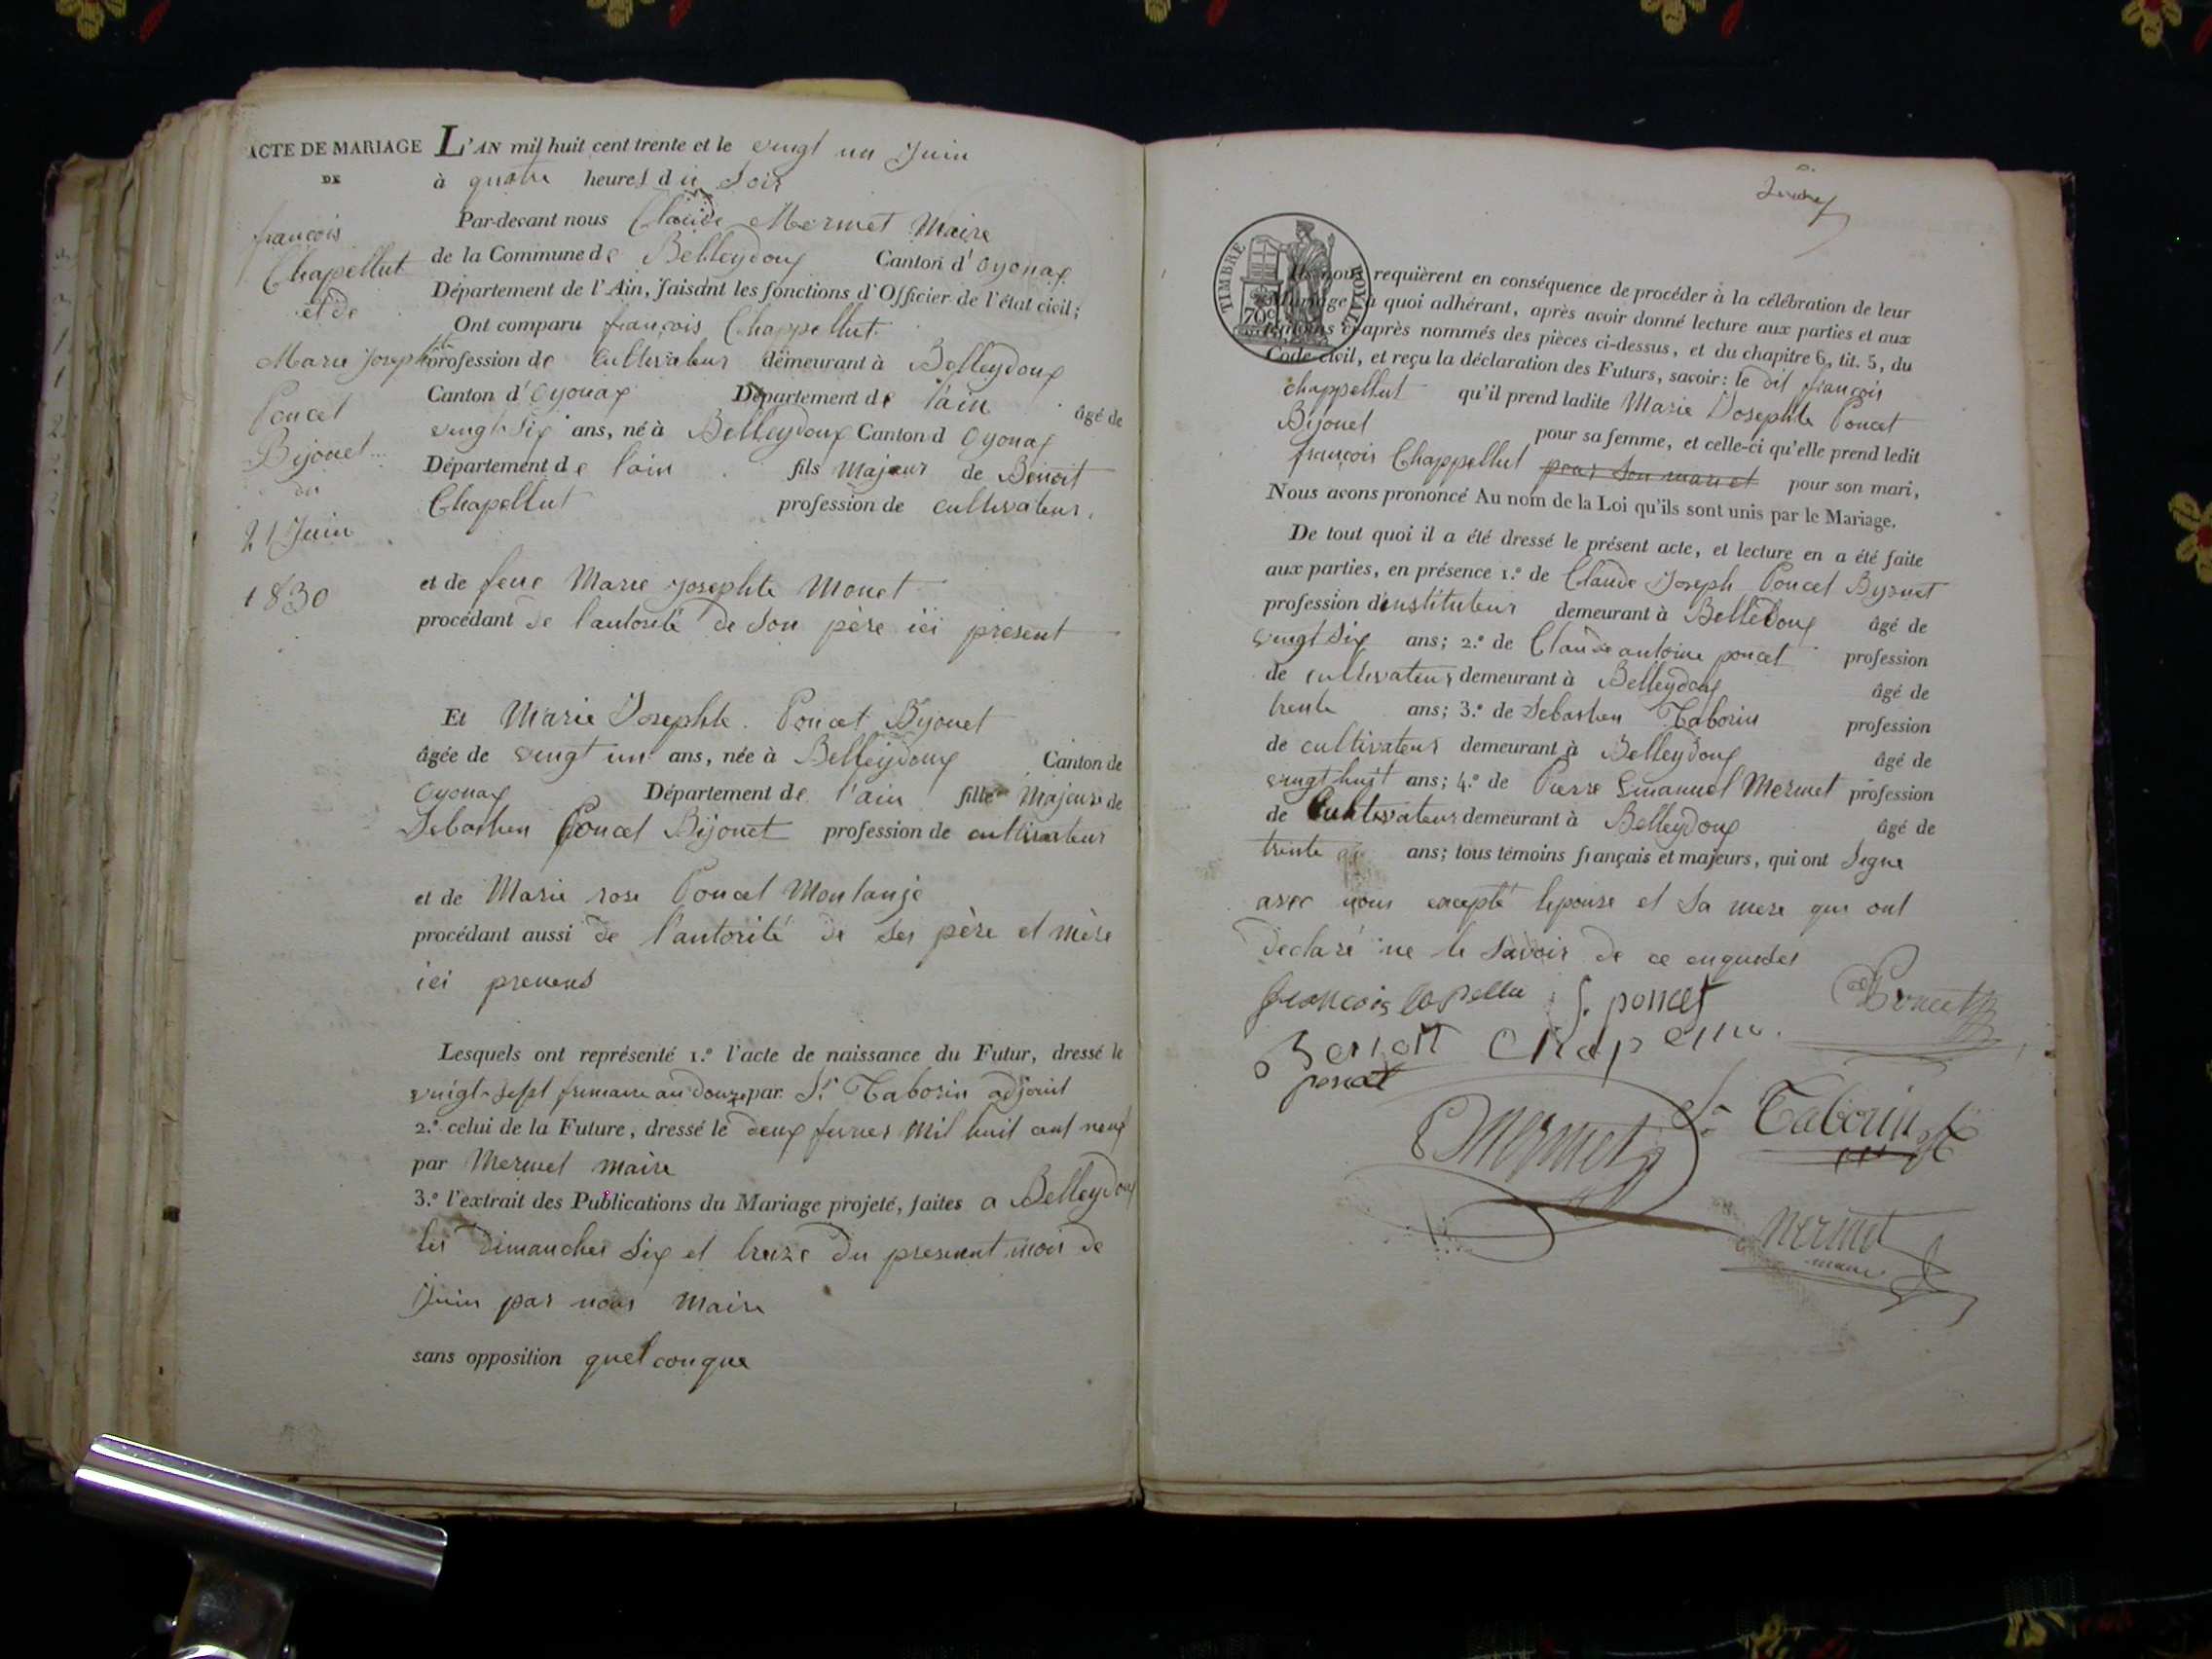 ACTE DE MARIAGE
DE
françois
Chapellut
et de
Marie Josephte
Poncet
Bijouet
du
21 Juin
1830
L'AN mil huit cent trente et le vingt un Juin
à quatre heures du Soir
Par-devant nous Claude Mermet Maire
de la Commune de Belleydoux Canton d'Oyonax
Département de l'Ain, faisant les fonctions d'Officier de l'état civil;
Ont comparu françois Chappellut
profession de Cultivateur demeurant à Belleydoux
Canton d'Oyonax Département de l'ain âgé de
vingt Six ans, né à Belleydoux Canton d Oyonax
Département de l'ain fils Majeur de Benoit
Chapellut profession de cultivateur.
et de feue Marie Josephte Monet
procédant de l'autorité de Son père ici présent
Et Marie Josephte Poncet Bijouet
âgée de vingt un ans, née à Belleydoux Canton de
Oyonax Département de l'ain fille Majeure de
Sebastien Poncet Bijouet profession de cultivateur
et de Marie rose Poncet Montange
procédant aussi de l'autorité de Ses père et mère
ici presens
Lesquels ont représenté 1.° l'acte de naissance du Futur, dressé le
vingt-Sept frimaire an douze par St Taborin adjoint
2.° celui de la Future, dressé le deux fevrier Mil huit cent neuf
par Mermet maire
3.° l'extrait des Publications du Mariage projeté, faites a Belleydoux
les Dimanches Six et treize du present mois de
Juin par nous Maire
sans opposition quelconque
TIMBRE ROYAL
70c
Ils nous requièrent en conséquence de procéder à la célébration de leur
Mariage à quoi adhérant, après avoir donné lecture aux parties et aux
témoins ci-après nommés des pièces ci-dessus, et du chapitre 6, tit. 5, du
Code civil, et reçu la déclaration des Futurs, savoir: le dit françois
chappellut qu'il prend ladite Marie Josephte Poncet
Bijouet pour sa femme, et celle-ci qu'elle prend ledit
françois Chappellut pour Son mari et pour son mari,
Nous avons prononcé Au nom de la Loi qu'ils sont unis par le Mariage.
De tout quoi il a été dressé le présent acte, et lecture en a été faite
aux parties, en présence 1.° de Claude Joseph Poncet Byouet
profession d'instituteur demeurant à Belledoux âgé de
vingt Six ans; 2.° de Claude antoine poncet profession
de cultivateur demeurant à Belleydoux âgé de
trente ans; 3.° de Sebastien Taborin profession
de cultivateur demeurant à Belleydoux âgé de
vingt huit ans; 4.° de Pierre Emanuel Mermet profession
de Cultivateur demeurant à Belleydoux âgé de
trente ans; tous témoins français et majeurs, qui ont Signé
avec nous excepté lepouse et Sa mere qui ont
declaré ne le Savoir de ce enquises
francois Capellu S. poncet Poncet
Benoit Chapellu
poncet
Mermet Sn Taborin
Mermet
maire